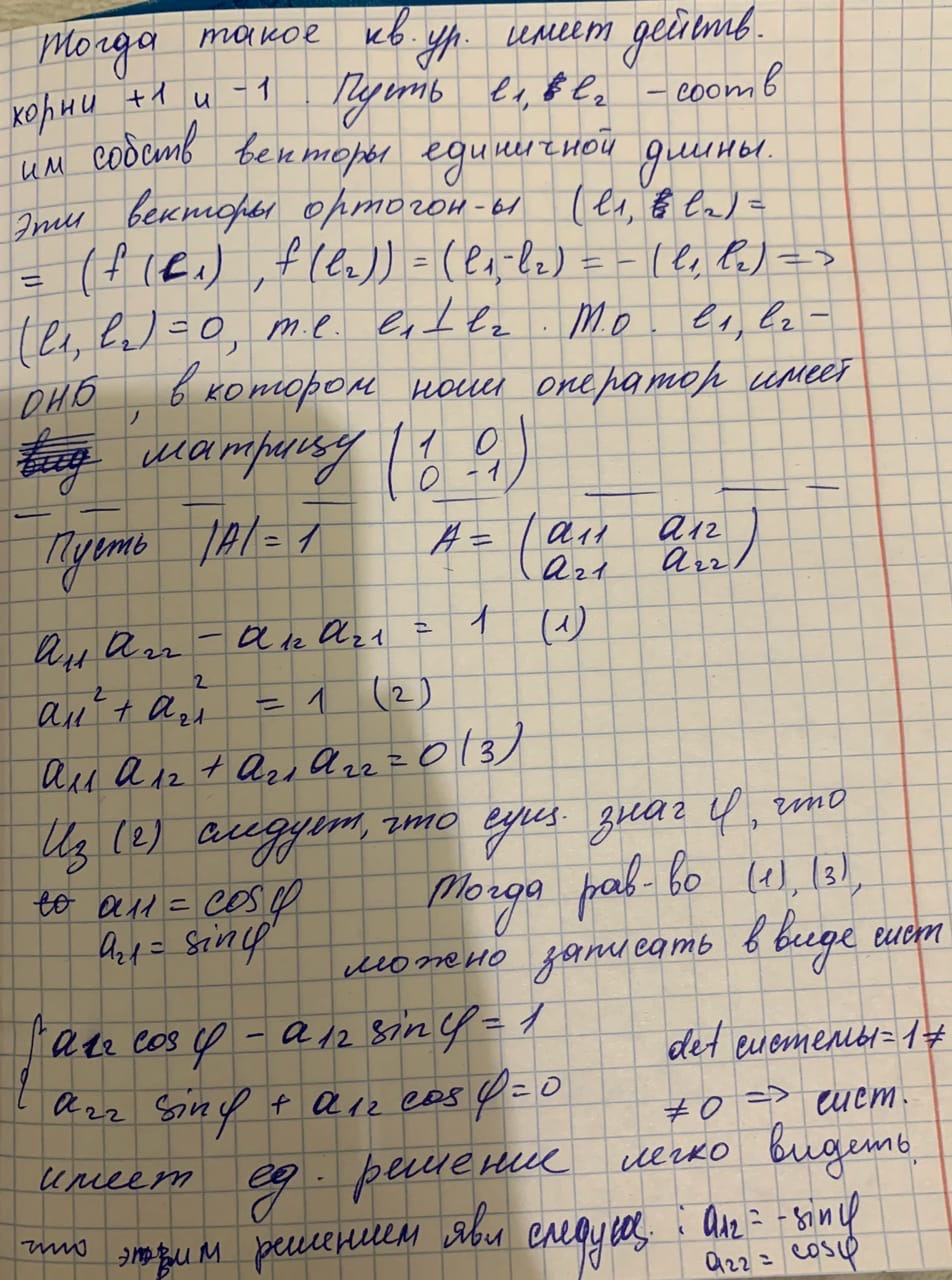 Тогда такое кв. ур. имеет действ.
корни +1 и -1. Пусть e₁, e₂ – соотв
им собств векторы единичной длины.
Эти векторы ортогон-ы (e₁, e₂) =
= (f(e₁), f(e₂)) = (e₁, -e₂) = -(e₁, e₂) =>
(e₁, e₂) = 0, т.е. e₁ ⊥ e₂. Т.о. e₁, e₂ –
ОНБ, в котором наш оператор имеет
матрицу (1 0
0 -1)
Пусть |A| = 1 A = (a₁₁ a₁₂
a₂₁ a₂₂)
a₁₁ a₂₂ - a₁₂ a₂₁ = 1 (1)
a₁₁² + a₂₁² = 1 (2)
a₁₁ a₁₂ + a₂₁ a₂₂ = 0 (3)
Из (2) следует, что сущ. знач φ, что
a₁₁ = cosφ Тогда рав-во (1), (3),
a₂₁ = sinφ
можно записать в виде сист
{ a₂₂ cosφ - a₁₂ sinφ = 1
det системы = 1 ≠
a₂₂ sinφ + a₁₂ cosφ = 0
≠ 0 => сист.
имеет ед. решение легко видеть,
что этим решением явл следующ.: a₁₂ = -sinφ
a₂₂ = cosφ